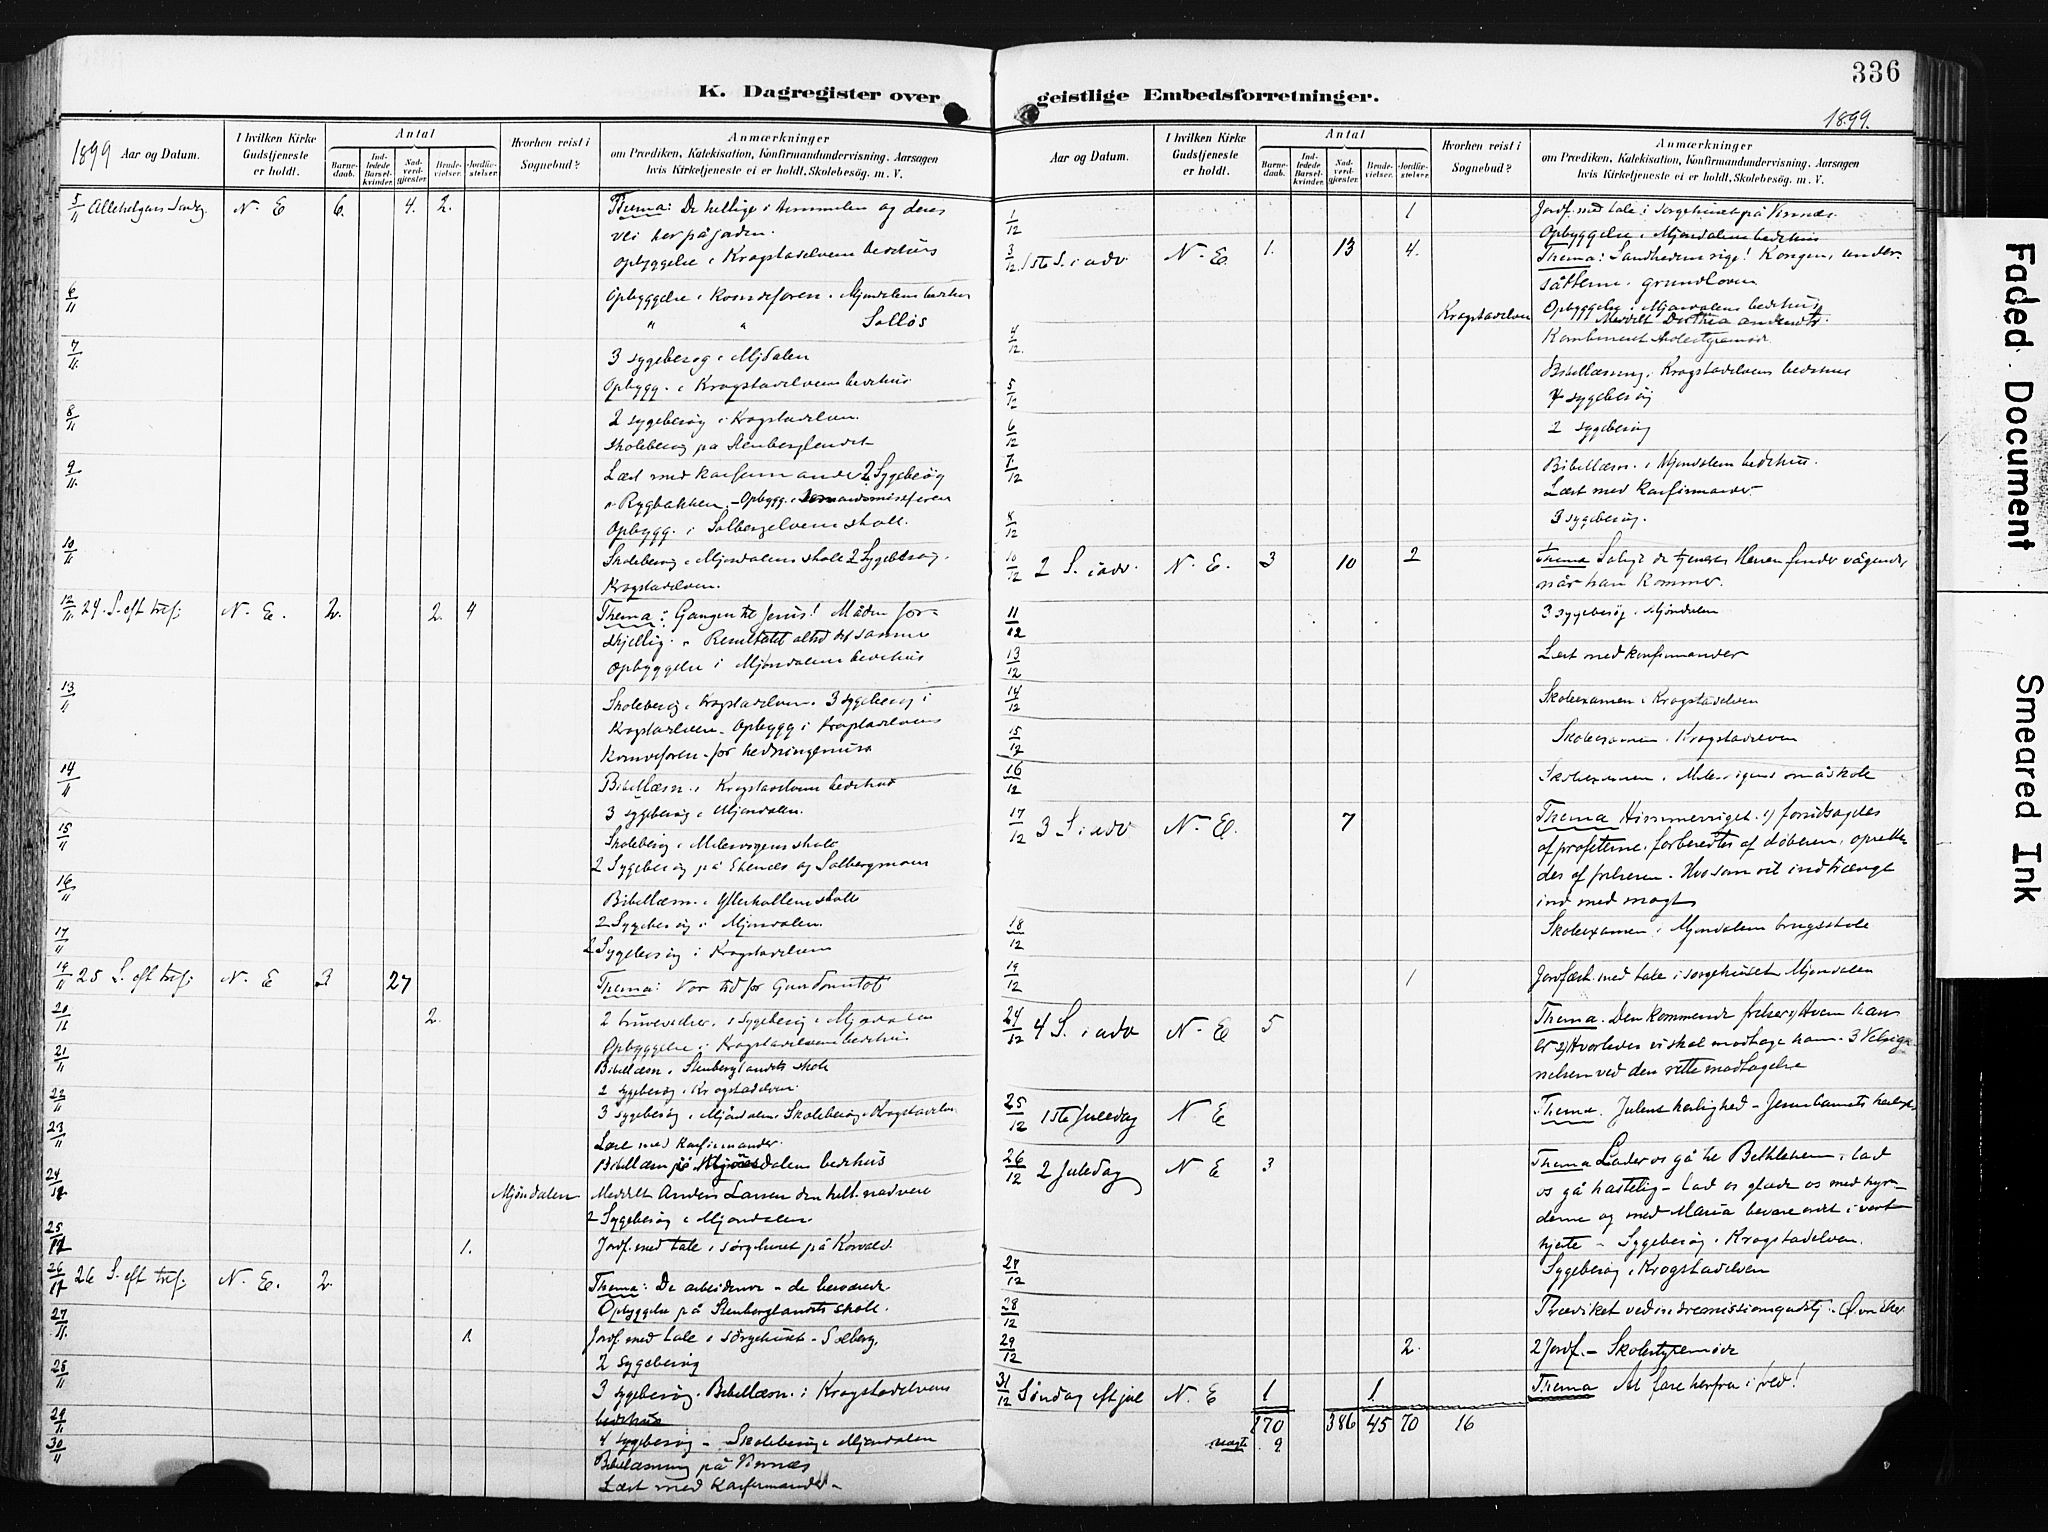 336
K. Dagregister over geistlige Embedsforretninger.
1899
1899.
Aar og Datum.
I hvilken Kirke Gudstjeneste er holdt.
Antal
Barne-daab.
Ind-ledede Barsel-kvinder.
Nad-verd-gjester.
Brude-vielser.
Jordfæ-stelser.
Hvorhen reist i Sognebud?
Anmærkninger
om Prædiken, Katekisation, Konfirmandundervisning, Aarsagen
hvis Kirketjeneste ei er holdt, Skolebesøg. m. V.
5/11 Allehelgens Søndag N. E 6. 4. 2. Thema: De hellige i himmelen og deres
vei her på jorden.
Opbyggelse i Krogstadelvens bedehus
6/11 Opbyggelse i Kvindeforen. Mjøndalens bedehus
" " Solløs
7/11 3 sygebesøg i Mjdalen
Opbygg. i Krogstadelvens bedehus
8/11 2 sygebesøg i Krogstadelven.
Skolebesøg på Stenberglandet
9/11 Læst med konfirmander 2 Sygebesøg
Rygbakken. Opbygg.
Opbygg. i Solbergelvens skole.
10/11 Skolebesøg i Mjøndalens skole 2 Sygebesøg.
Krogstadelven.
12/11 24. S. eft tref: N. E. 2. 2. 4 Thema: Gangen til Jesus! Måden for-
skjellig. Resultatet altid det samme
Opbyggelse i Mjøndalens bedehus
13/11 Skolebesøg i Krogstadelven. 3 sygebesøg i
Krogstadelven. Opbygg i Krogstadelvens
Kvindeforen. for hedningemiss
14/11 Bibellæsn. i Krogstadelvens bedehus
3 sygebesøg i Mjøndalen.
15/11 Skolebesøg i Milesvigens skole
2 Sygebesøg på Ekenæs og Solbergmoen
16/11 Bibellæsn. i Ytterkollens skole
2 Sygebesøg i Mjøndalen.
17/11 2 Sygebesøg i Krogstadelven
19/11 25 S. eft tref: N. E 3 27 Thema: Vor tid for Guds domstol
20/11 2. 2 bruevielser. 1 sygebesøg i Mjøndalen
Opbyggelse i Krogstadelvens bedehus
21/11 Bibellæsn. i Stenberglandets skole
2 sygebesøg i Krogstadelven.
22/11 3 sygebesøg i Mjøndalen. Skolebesøg i Krogstadelven
23/11 Læst med konfirmander.
Bibellæsn på Mjøndalens bedehus
24/11 Mjøndalen Meddelt Anders Larsen den hell. nadvere
2 Sygebesøg i Mjøndalen.
25/11 1. Jordf. med tale i sørgehuset på Korvald.
26/11 26 S. eft tref: N. E. 2. Thema: De arbeidende - de besværede
Opbyggelse på Stenberglandets skole.
27/11 1 Jordf. med tale i sørgehuset - Solberg.
2 sygebesøg
28/11 3 sygebesøg. Bibellæsn. i Krogstadelvens
bedehus
29/11 4 sygebesøg - Skolebesøg i Mjøndalen
30/11 Bibellæsning på Vernæs
Læst med Konfirmander -
Aar og Datum.
I hvilken Kirke Gudstjeneste er holdt.
Antal
Barne-daab.
Ind-ledede Barsel-kvinder.
Nad-verd-gjester.
Brude-vielser.
Jordfæ-stelser.
Hvorhen reist i Sognebud?
Anmærkninger
om Prædiken, Katekisation, Konfirmandundervisning, Aarsagen
hvis Kirketjeneste ei er holdt, Skolebesøg. m. V.
1/12 1 Jordf. med tale i sørgehuset på Vernæs
Opbyggelse i Mjøndalens bedehus
3/12 1ste S. i adv N. E. 1. 13 4. Thema: Sandhedens rige! Kongen, under-
såtterne, grundloven
Opbyggelse i Mjøndalens bedehus
4/12 Krogstadelven Meddelt Dorthea
Kombineret skolestyremøde
5/12 Bibellæsning. Krogstadelvens bedehus
4 sygebesøg
6/12 2 sygebesøg
7/12 Bibellæsn. i Mjøndalens bedehus.
Læst med konfirmander.
8/12 3 sygebesøg.
10/12 2 S. i adv. N. E. 3 10 2 Thema Salige de tjenere Herren finder vågende,
når han kommer.
11/12 3 sygebesøg. Mjøndalen
13/12 Læst med konfirmander
14/12 Skoleexamen i Krogstadelven
15/12 Skoleexamen i Krogstadelven
16/12 Skoleexamen i Milesvigens småskole
17/12 3 S. i adv N. E. 7 Thema Himmeriget. 1) forudsagdes
af profeterne. forberedtes af døberen, oprette-
des af frelseren. Hvo som vil indtrænge
ind med magt
18/12 Skoleexamen i Mjøndalens brugsskole
19/12 1 Jordfæst. med tale i sørgehuset Mjøndalen
24/12 4 S. i adv N. E 5 Thema. Den kommende frelser 1) Hvem han
er 2) Hvorledes vi skal modtage ham. 3 Velsig-
nelsen ved den rette modtagelse
25/12 1ste Juledag N. E Thema. Julens herlighed - Jesusbarnets herlighed
26/12 2 Juledag N. E 3 Thema Lader os gå til Bethlehem, lad
os gå hastelig - lad os glæde os med hyr-
derne og med Maria bevare ordet i vort
hjerte - Sygebesøg i Krogstadelven.
27/12 Sygebesøg i Krogstadelven
28/12 Prædiket ved indremissionsgudstj. - Ø. eiker
29/12 2. 2 Jordf. - Skolestyremøde
31/12 Søndag eft jul N. E 1 1 Thema At fare herfra i fred!
170 386 45 70 16
uægte 9
Faded Document
Smeared Ink